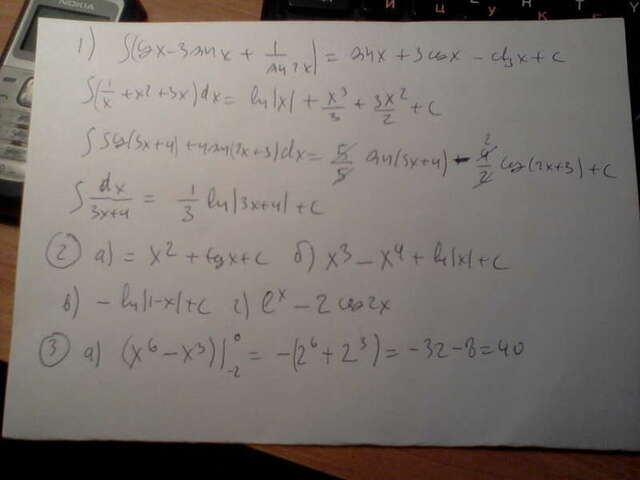 NOKIA
И Ц У К
1) ∫(cosx - 3sinx + 1/sin²x) = sinx + 3cosx - ctgx + c
∫(1/x + x² + 3x)dx = ln|x| + x³/3 + 3x²/2 + c
∫5cos(5x+4) + 4sin(2x+3)dx = 5/5 sin(5x+4) - 4/2 2 cos(2x+3) + c
∫ dx/3x+4 = 1/3 ln|3x+4| + c
2 a) = x² + tgx + c б) x³ - x⁴ + ln|x| + c
в) - ln|1-x| + c г) eˣ - 2cos2x
3 a) (x⁶ - x³)|⁰₋₂ = -(2⁶ + 2³) = -32 - 8 = 40